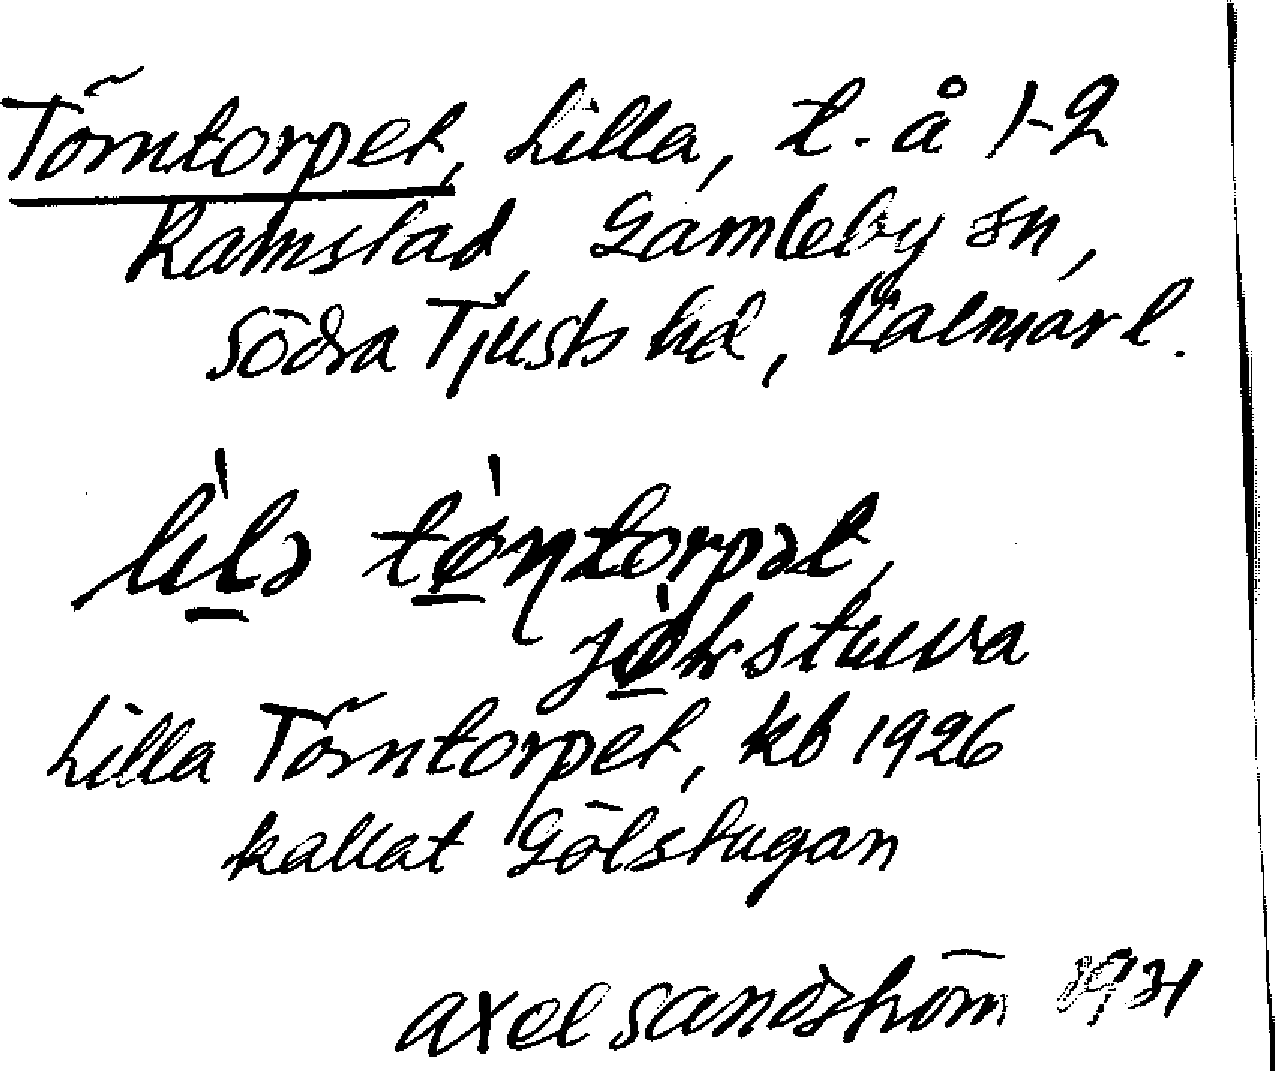 Törntorpet, Lilla, t. å 1-2
Ramstad, Gamleby sn,
Södra Tjusts hd, Kalmar l.
lìlə tø̀ntorpət,
jø̀lstuva
Lilla Törntorpet, kb 1926
kallat Gölstugan
Axel Sandström 1931